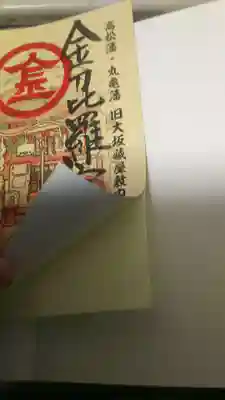 高松藩・丸亀藩 旧大坂蔵屋敷
金毘羅
金